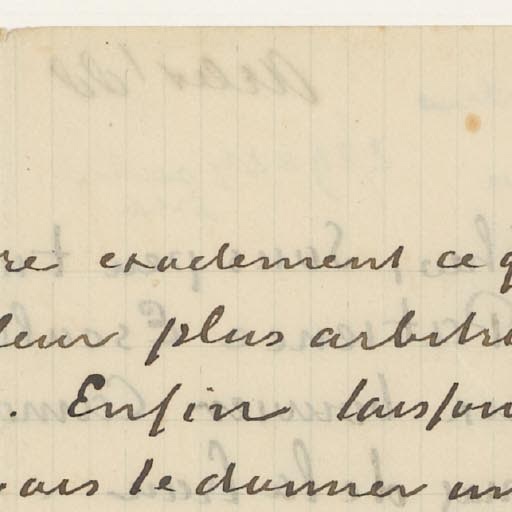 re exactement ce q
leur plus arbitra
. Enfin laissons
vais te donner un